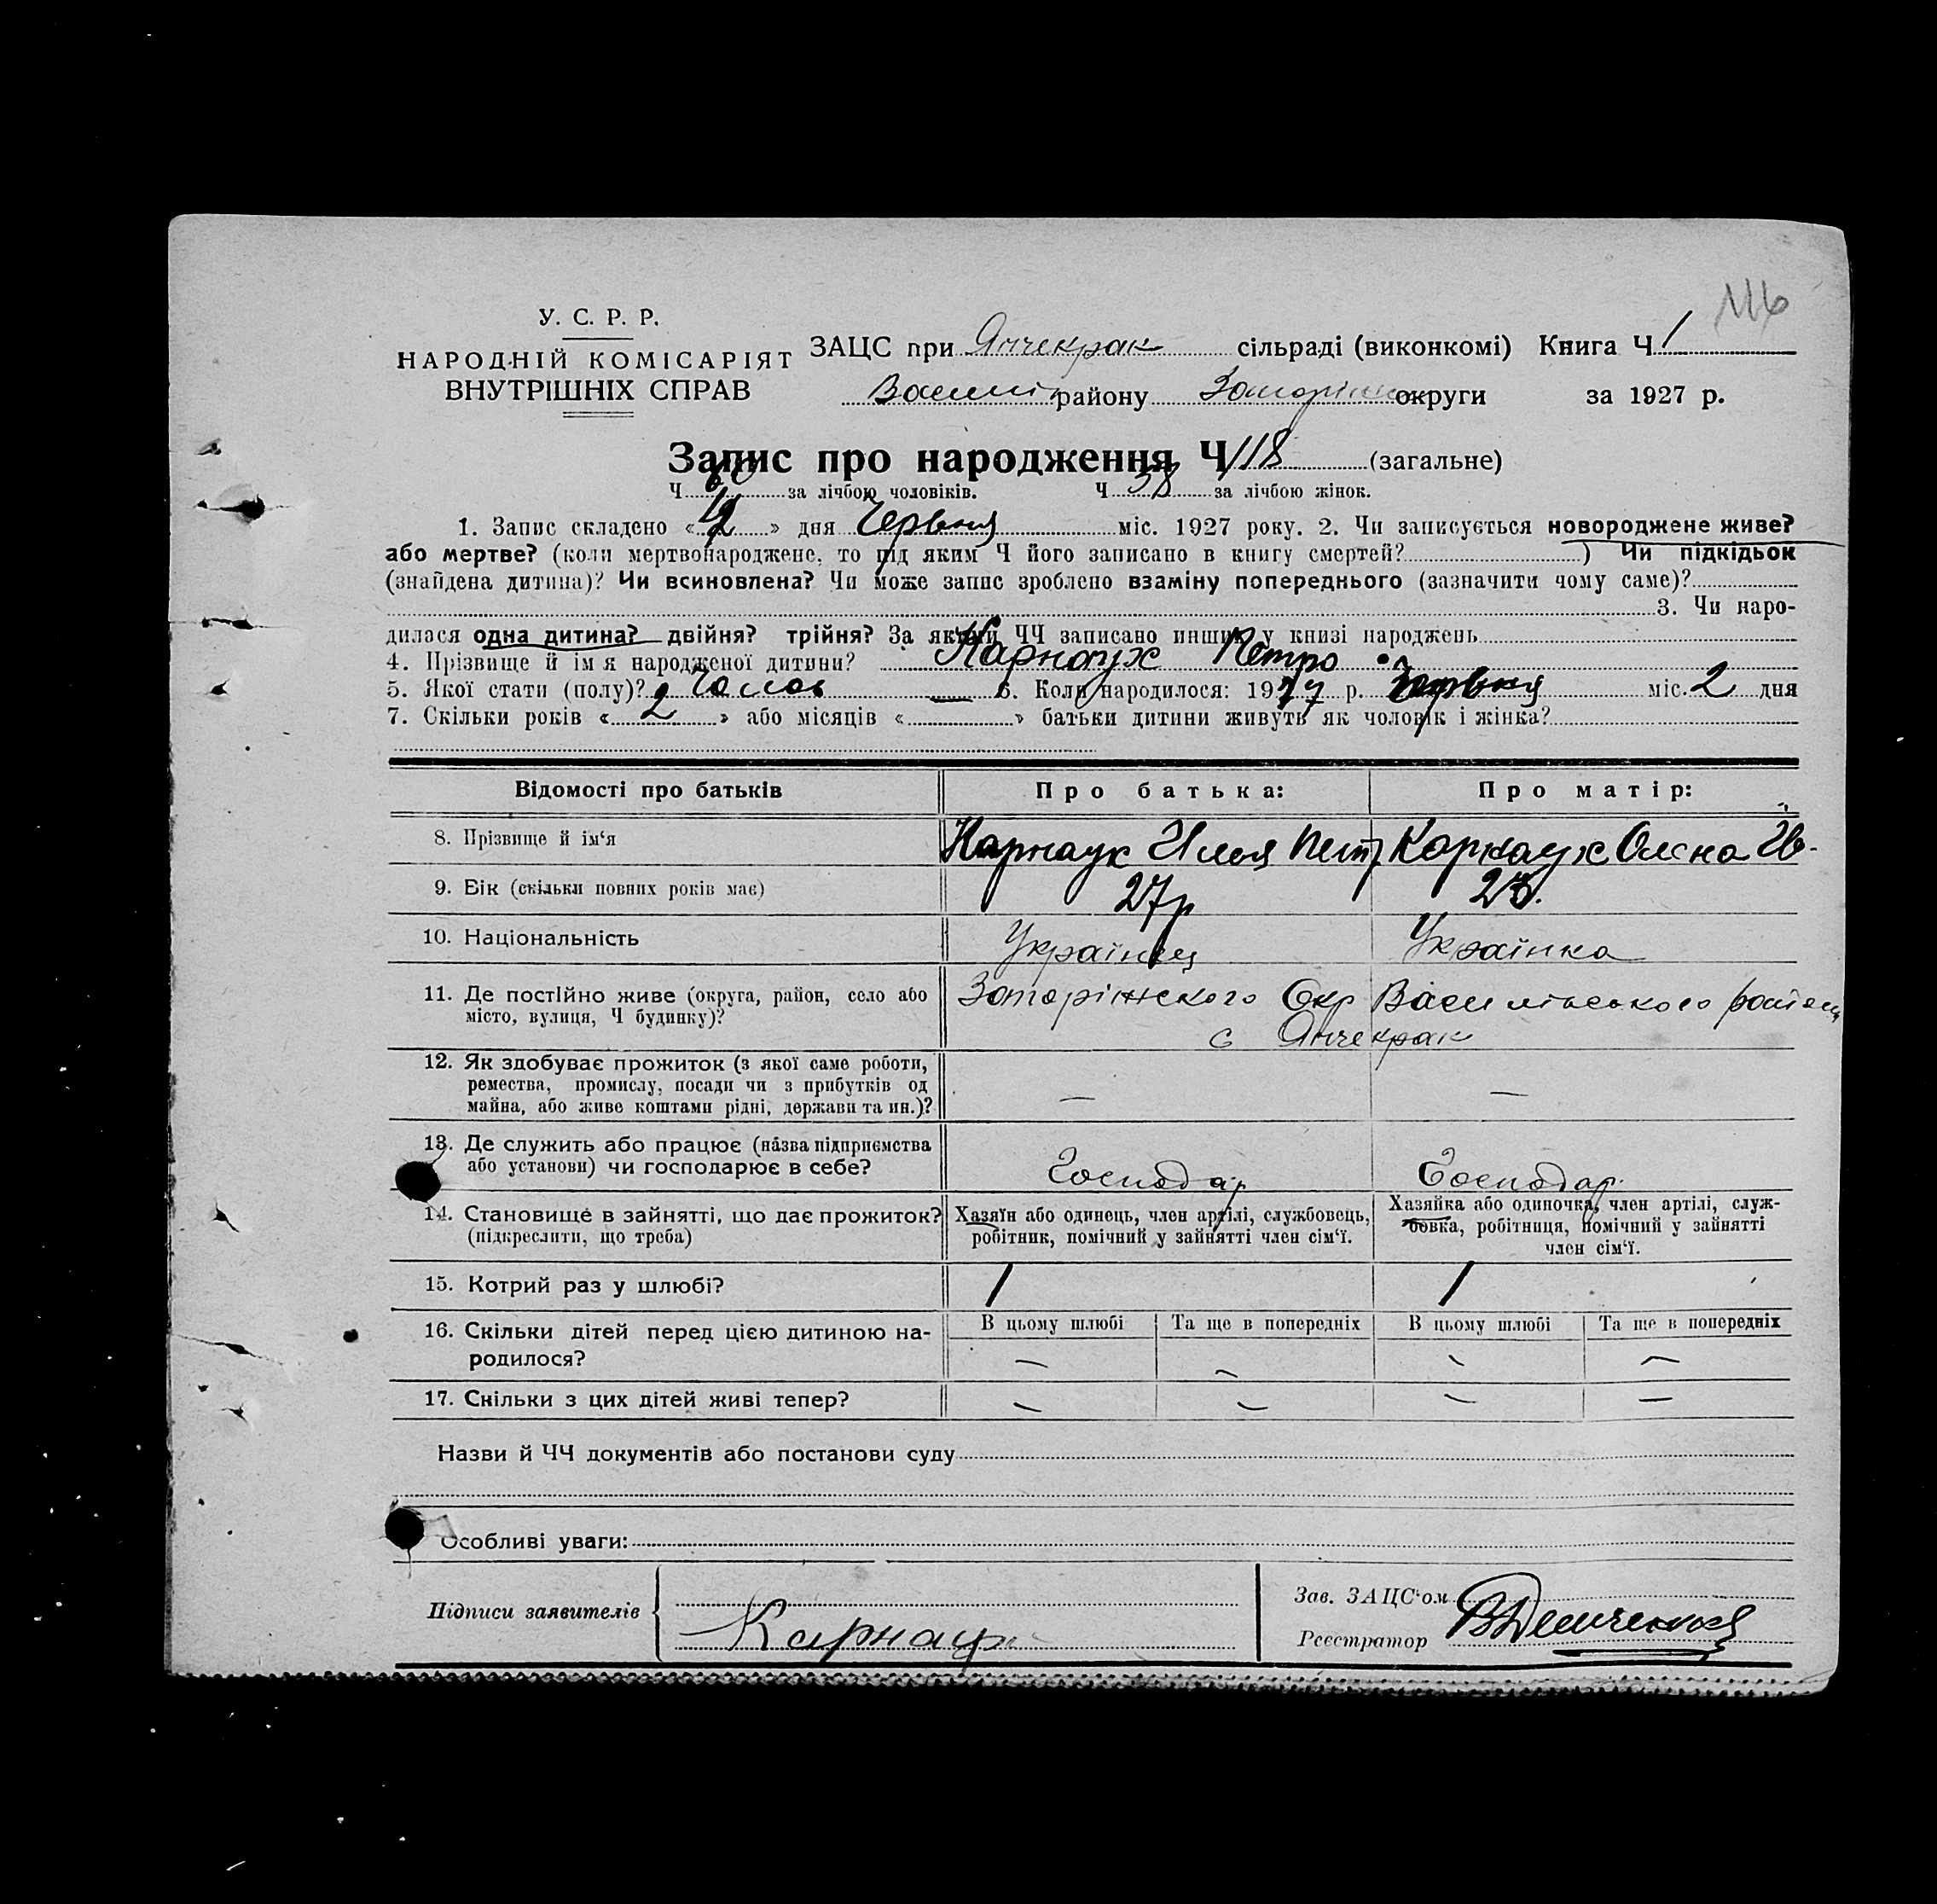 116
У. С. Р. Р.
НАРОДНІЙ КОМІСАРІЯТ
ВНУТРІШНІХ СПРАВ
ЗАЦС при Янчекрак сільраді (виконкомі) Книга Ч. 1
Васил району Запоріжс округи за 1927 р.
Запис про народження Ч 118 (загальне)
Ч 60 за лічбою чоловіків. Ч 58 за лічбою жінок.
1. Запис складено « » дня Червня міс. 1927 року. 2. Чи записується новороджене живе?
або мертве? (коли мертвонароджене, то під яким Ч його записано в книгу смертей? ) Чи підкідьок
(знайдена дитина)? Чи всиновлена? Чи може запис зроблено взаміну попереднього (зазначити чому саме)?
3. Чи наро-
дилася одна дитина? двійня? трійня? За якими ЧЧ записано инших у книзі народжень
4. Прізвище й ім'я народженої дитини? Карнаух Петро
5. Якої статі (полу)? Чолов — 6. Коли народилося: 1927 р. Червня міс. 2 дня
7. Скільки років « 2 » або місяців « » батьки дитини живуть як чоловік і жінка?
Відомості про батьків Про батька: Про матір:
8. Прізвище й ім'я Карнаух Илья Петр Карнаух Олена Ів.
9. Вік (скільки повних років має) 27р 23.
10. Національність Українец Українка
11. Де постійно живе (округа, район, село або Запоріжского Окр Василівського району
місто, вулиця, Ч будинку)? с Янчекрак
12. Як здобуває прожиток (з якої саме роботи,
ремества, промислу, посади чи з прибутків од
майна, або живе коштами рідні, держави та ин.)? — —
13. Де служить або працює (назва підприємства
або установи) чи господарює в себе? Господар Господар
14. Становище в зайнятті, що дає прожиток? Хазяїн або одинець, член артілі, службовець, Хазяйка або одиночка, член артілі, служ-
(підкреслити, що треба) робітник, помічний у зайнятті член сім'ї. бовка, робітниця, помічний у зайнятті
член сім'ї.
15. Котрий раз у шлюбі? 1 1
16. Скільки дітей перед цією дитиною на- В цьому шлюбі Та ще в попередніх В цьому шлюбі Та ще в попередніх
родилося? — — — —
17. Скільки з цих дітей живі тепер? — — — —
Назви й ЧЧ документів або постанови суду
Особливі уваги:
Підписи заявителів Карнаух
Зав. ЗАЦС'ом
Реєстратор